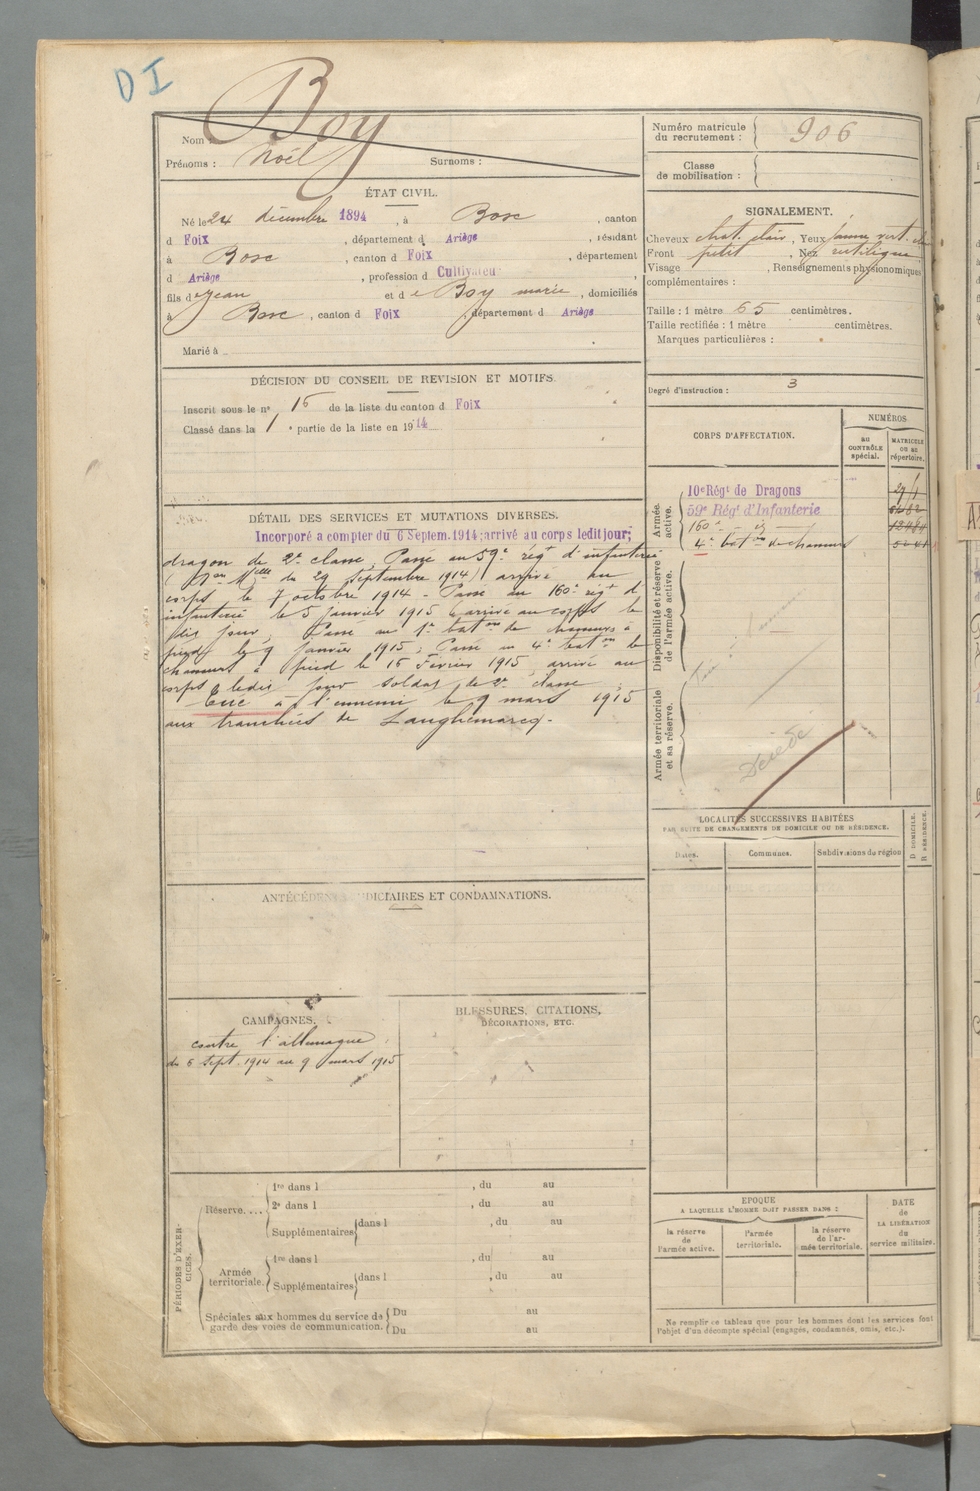 DI
Boy
Nom :
Prénoms : Noël Surnoms :
Numéro matricule du recrutement : 906
Classe de mobilisation :
ÉTAT CIVIL.
Né le 24 décembre 1894, à Bosc, canton
d Foix, département d Ariège, résidant
à Bosc, canton d Foix, département
d Ariège, profession d Cultivateu
fils de Jean et de Boy marie, domiciliés
à Bosc, canton d Foix, département d Ariège
Marié à
SIGNALEMENT.
Cheveux chat. clair, Yeux jaune vert. clair
Front petit, Nez rectiligne
Visage , Renseignements physionomiques
complémentaires :
Taille : 1 mètre 65 centimètres.
Taille rectifiée : 1 mètre centimètres.
Marques particulières :
Degré d'instruction : 3
DÉCISION DU CONSEIL DE REVISION ET MOTIFS.
Inscrit sous le n° 15 de la liste du canton d Foix
Classé dans la 1 e partie de la liste en 1914
DÉTAIL DES SERVICES ET MUTATIONS DIVERSES.
Incorporé a compter du 6 Septem. 1914; arrivé au corps ledit jour;
dragon de 2e classe, Passé au 59e régt d'infanterie
(Don Melle du 29 Septembre 1914) arrivé au
corps le 7 octobre 1914 - Passé au 160e régt d'
infanterie le 5 janvier 1915 arrivé au corps le
dit jour, Passé au 1er baton de chasseurs à
pied le 9 janvier 1915; Passé au 4e baton de
chasseurs à pied le 16 Février 1915 arrivé au
corps ledit jour soldat de 2e classe
Tué à l'ennemi le 9 mars 1915
aux tranchées de Langhemarcq.
CORPS D'AFFECTATION.
NUMÉROS
au CONTRÔLE spécial.
MATRICULE OU AU répertoire.
Armée active.
10e Régt de Dragons
59e Régt d'Infanterie
160e - id -
4e baton de chasseurs
Disponibilité et réserve de l'armée active.
Armée territoriale et sa réserve.
Décédé
LOCALITÉS SUCCESSIVES HABITÉES
PAR SUITE DE CHANGEMENTS DE DOMICILE OU DE RÉSIDENCE.
Dates.
Communes.
Subdivisions de région
D DOMICILE.
R RÉSIDENCE.
ANTÉCÉDENTS JUDICIAIRES ET CONDAMNATIONS.
CAMPAGNES.
contre l'allemagne
du 6 Sept. 1914 au 9 mars 1915
BLESSURES, CITATIONS,
DÉCORATIONS, ETC.
PÉRIODES D'EXERCICES.
Réserve....
1re dans l , du au
2e dans l , du au
Supplémentaires dans l , du au
Armée territoriale.
1re dans l , du au
Supplémentaires dans l , du au
Spéciales aux hommes du service de Du au
garde des voies de communication. Du au
EPOQUE
A LAQUELLE L'HOMME DOIT PASSER DANS :
la réserve de l'armée active.
l'armée territoriale.
la réserve de l'armée territoriale.
DATE de LA LIBÉRATION du service militaire.
Ne remplir ce tableau que pour les hommes dont les services font
l'objet d'un décompte spécial (engagés, condamnés, omis, etc.).